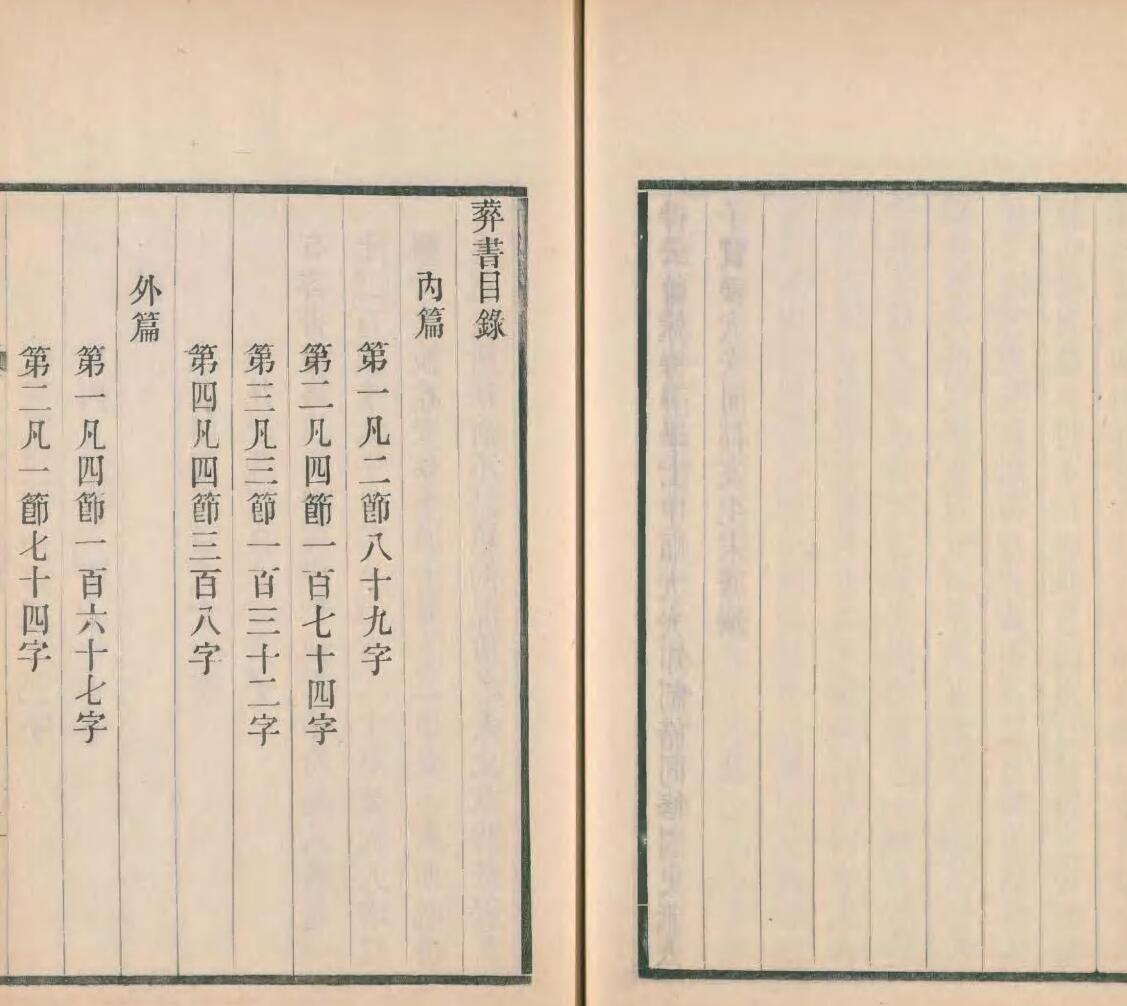 葬書目錄
內篇
第一凡二節八十九字
第二凡四節一百七十四字
第三凡三節一百三十二字
第四凡四節三百八字
外篇
第一凡四節一百六十七字
第二凡一節七十四字